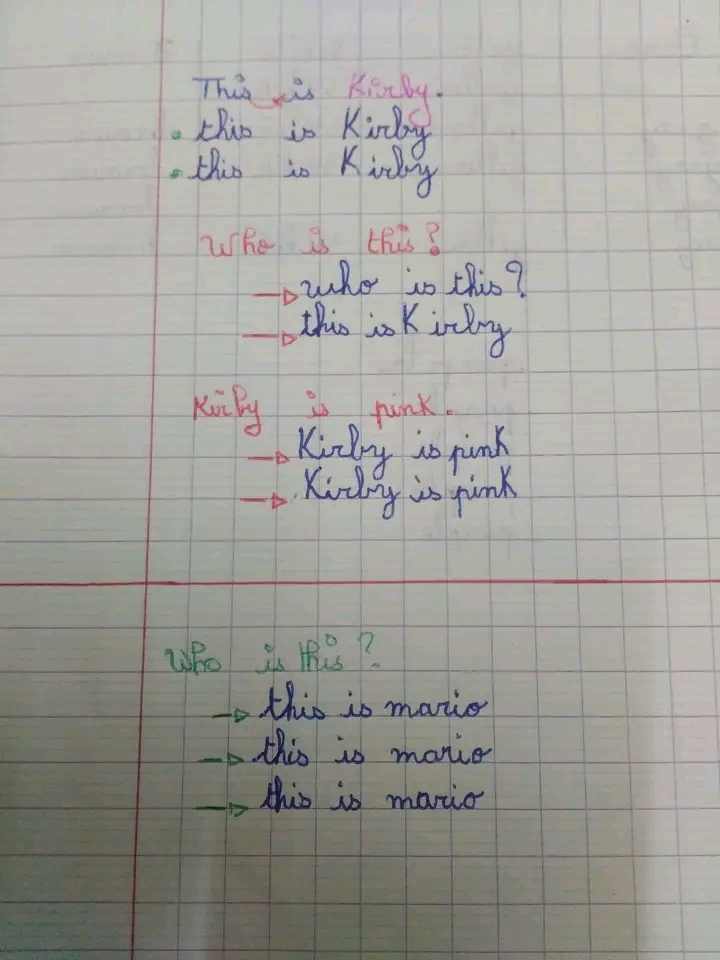 This is Kirby.
this is Kirby
this is Kirby
Who is this?
who is this?
this is Kirby
Kirby is pink.
Kirby is pink
Kirby is pink
Who is this?
this is mario
this is mario
this is mario